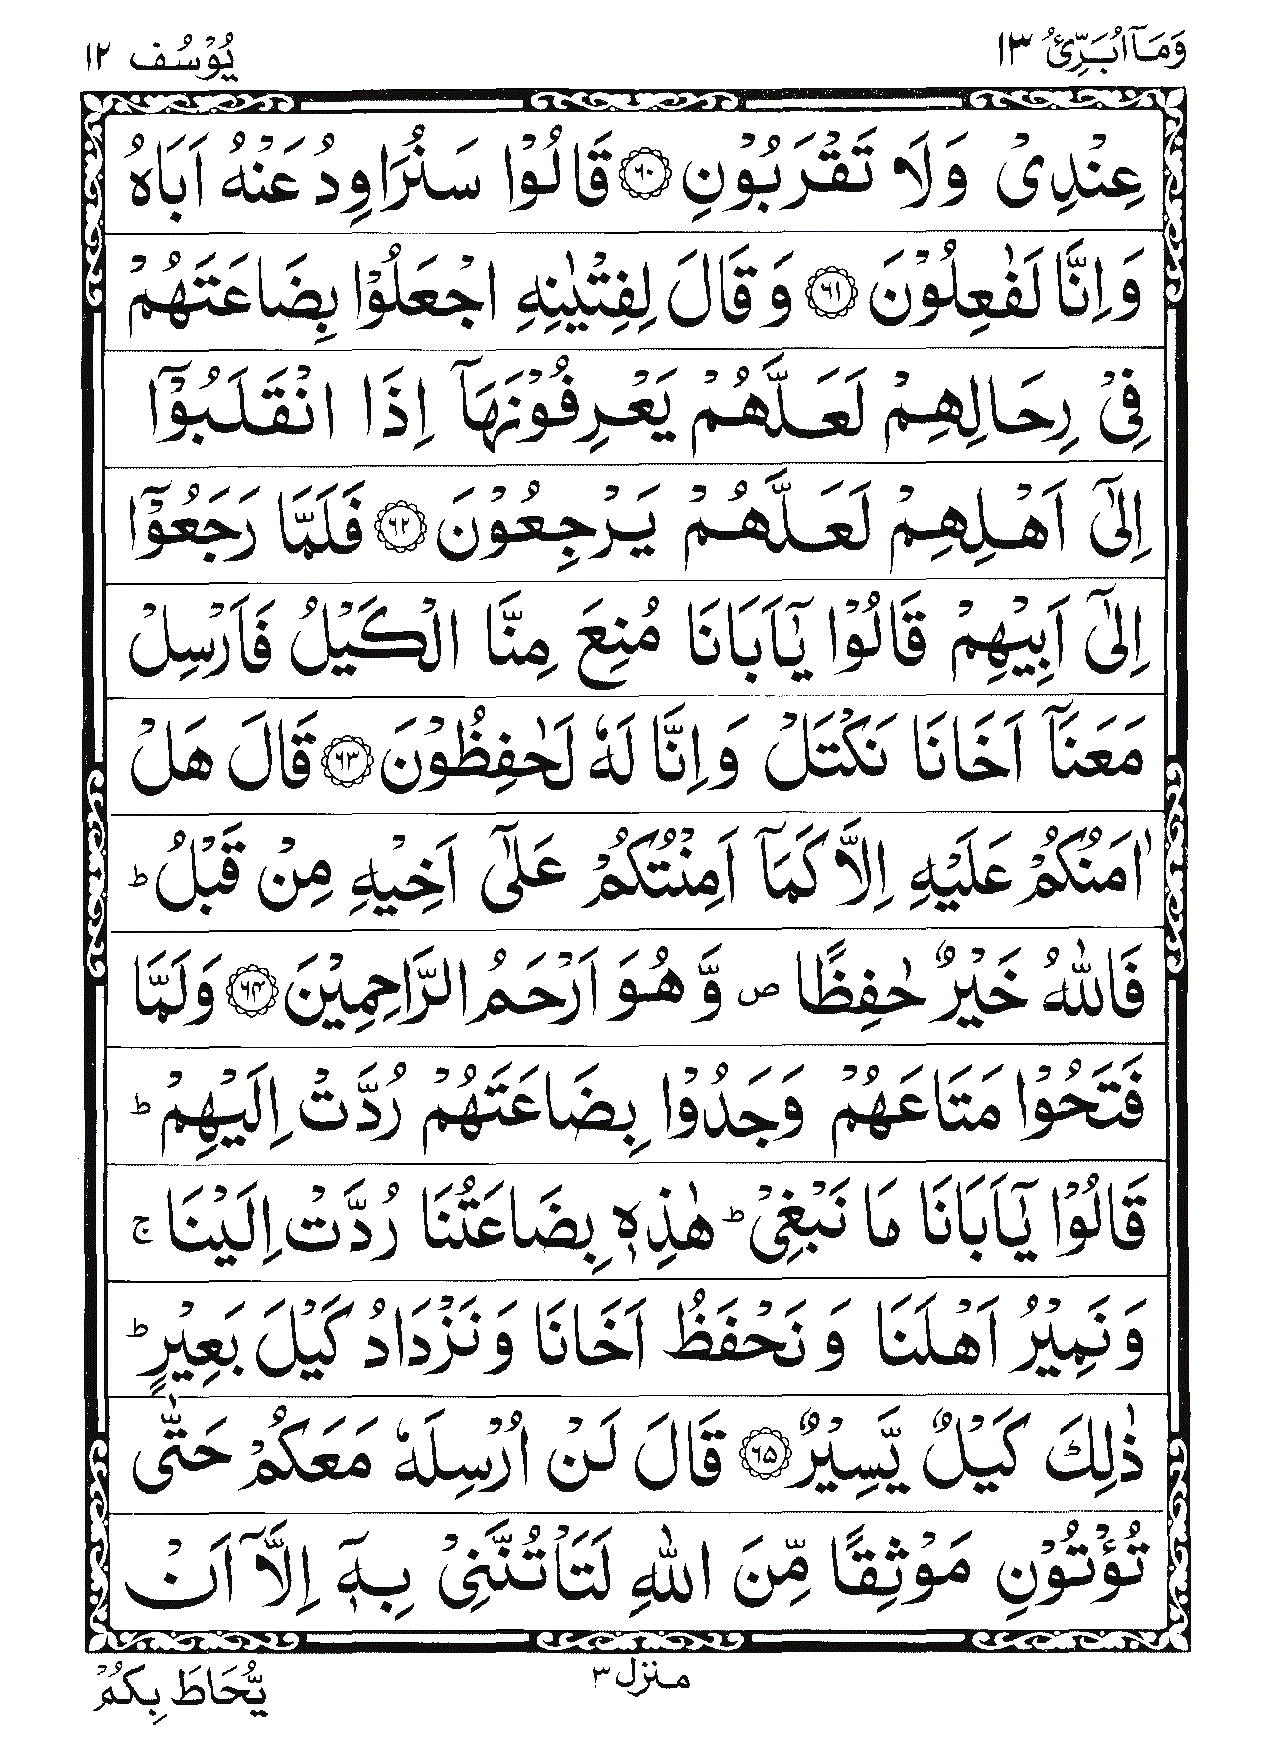 وَمَآ اُبَرِّئُ ١٣
يُوْسُف ١٢
عِنْدِیْ وَلَا تَقْرَبُوْنِ ﴿٦٠﴾ قَالُوْا سَنُرَاوِدُ عَنْهُ اَبَاهُ
وَاِنَّا لَفٰعِلُوْنَ ﴿٦١﴾ وَ قَالَ لِفِتْيٰنِهِ اجْعَلُوْا بِضَاعَتَهُمْ
فِیْ رِحَالِهِمْ لَعَلَّهُمْ يَعْرِفُوْنَهَاۤ اِذَا انْقَلَبُوْۤا
اِلٰۤی اَهْلِهِمْ لَعَلَّهُمْ يَرْجِعُوْنَ ﴿٦٢﴾ فَلَمَّا رَجَعُوْۤا
اِلٰۤی اَبِيْهِمْ قَالُوْا يٰۤاَبَانَا مُنِعَ مِنَّا الْكَيْلُ فَاَرْسِلْ
مَعَنَاۤ اَخَانَا نَكْتَلْ وَاِنَّا لَهٗ لَحٰفِظُوْنَ ﴿٦٣﴾ قَالَ هَلْ
اٰمَنُكُمْ عَلَيْهِ اِلَّا كَمَاۤ اَمِنْتُكُمْ عَلٰۤی اَخِيْهِ مِنْ قَبْلُ ؕ
فَاللّٰهُ خَيْرٌ حٰفِظًا ۪ وَّ هُوَ اَرْحَمُ الرَّاحِمِيْنَ ﴿٦٤﴾ وَلَمَّا
فَتَحُوْا مَتَاعَهُمْ وَجَدُوْا بِضَاعَتَهُمْ رُدَّتْ اِلَيْهِمْ ؕ
قَالُوْا يٰۤاَبَانَا مَا نَبْغِیْ ؕ هٰذِهٖ بِضَاعَتُنَا رُدَّتْ اِلَيْنَا ۚ
وَنَمِيْرُ اَهْلَنَا وَ نَحْفَظُ اَخَانَا وَ نَزْدَادُ كَيْلَ بَعِيْرٍ ؕ
ذٰلِكَ كَيْلٌ يَّسِيْرٌ ﴿٦٥﴾ قَالَ لَنْ اُرْسِلَهٗ مَعَكُمْ حَتّٰی
تُؤْتُوْنِ مَوْثِقًا مِّنَ اللّٰهِ لَتَاْتُنَّنِیْ بِهٖۤ اِلَّاۤ اَنْ
منزل ٣
يُّحَاطَ بِكُمْ